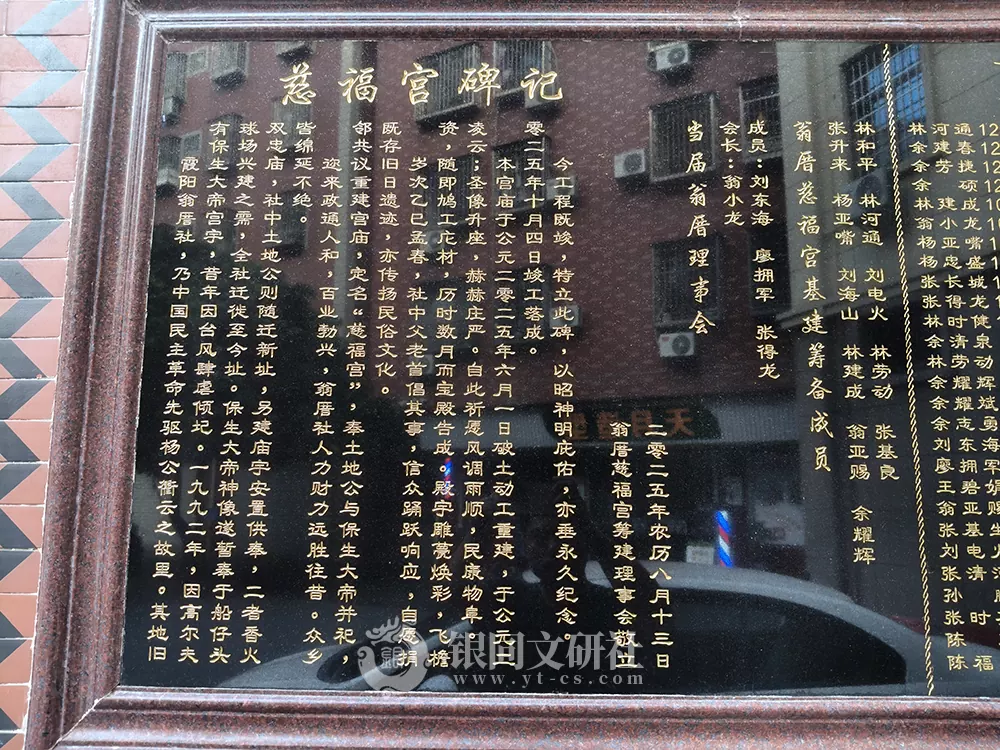 慈福宫碑记
霞阳翁厝社,乃中国民主革命先驱杨公衢云之故里。其地旧
有保生大帝宫宇,昔年因台风肆虐倾圮。一九九二年,因高尔夫
球场兴建之需,全社迁徙至今址。保生大帝神像遂暂奉于船仔头
双忠庙,社中土地公则随迁新址,另建庙宇安置供奉,二者香火
皆绵延不绝。
迩来政通人和,百业勃兴,翁厝社人力财力远胜往昔。众乡
邻共议重建宫庙,定名“慈福宫”,奉土地公与保生大帝并祀,
既存旧日遗迹,亦传扬民俗文化。
岁次乙巳孟春,社中父老首倡其事,信众踊跃响应,自愿捐
资,随即鸠工庀材,历时数月而宝殿告成。殿宇雕甍焕彩,飞檐
凌云;圣像升座,赫赫庄严。自此祈愿风调雨顺,民康物阜。
本宫庙于公元二零二五年六月一日破土动工重建,于公元二
零二五年十月四日竣工落成。
今工程既竣,特立此碑,以昭神明庇佑,亦垂永久纪念。
翁厝慈福宫筹建理事会敬立
二零二五年农历八月十三日
当届翁厝理事会
会长:翁小龙
成员:刘东海 廖拥军 张得龙
翁厝慈福宫基建筹备成员
张升来 杨亚嘴 刘海山 林建成 翁亚赐 余耀辉
林和平 林河通 刘电火 林劳动 张基良
林河通 12
余建春 12
余芳捷 12
余硕 12
林建成 10
翁小龙 10
杨亚嘴
杨忠盛
张长城
张得龙
林时健
余清泉
林劳动
余耀辉
余耀斌
余志勇
刘东海
廖拥军
王碧娟
翁亚赐
银同文研社
www.yt-cs.com